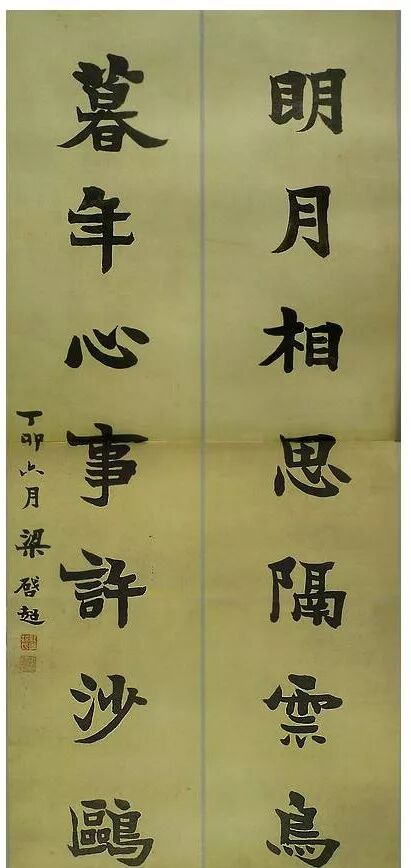 明月相思隔雲鳥
暮年心事許沙鷗
丁卯六月梁啓超